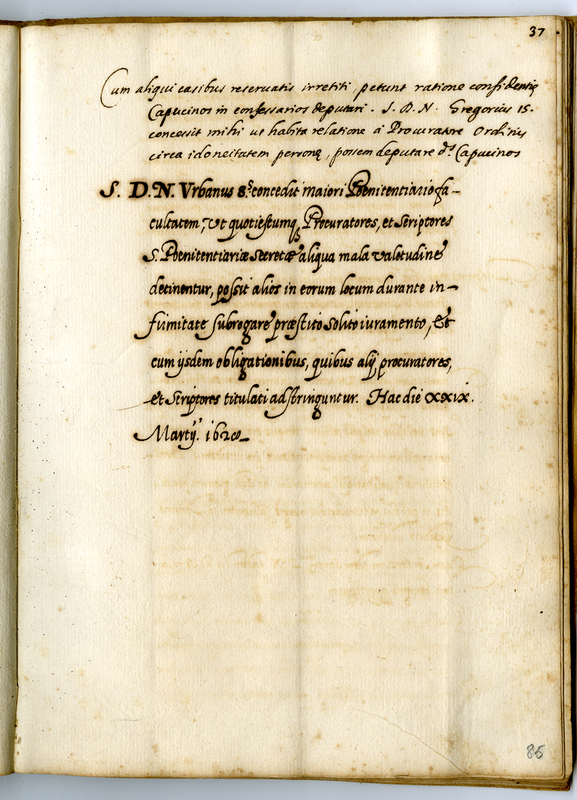 37
Cum aliqui casibus reservatis irretiti petunt ratione confidentię
Capucinos in confessarios deputari. S. D. N. Gregorius 15.
concessit mihi ut habita relatione à Procuratore Ordinis
circa idoneitatem personę, possem deputare d.s Capucinos
S. D. N. Vrbanus 8.s concedit maiori Pœnitentiario fa-
cultatem, vt quotiescumq; Procuratores, et Scriptores
S. Pœnitentiariæ Secretæ aliqua mala valetudine
detinentur, possit alios in eorum locum durante in-
firmitate subrogare præstito solito iuramento, et
cum ijsdem obligationibus, quibus alij procuratores,
et Scriptores titulati adstringuntur. Hac die XXIX.
Martij.
85